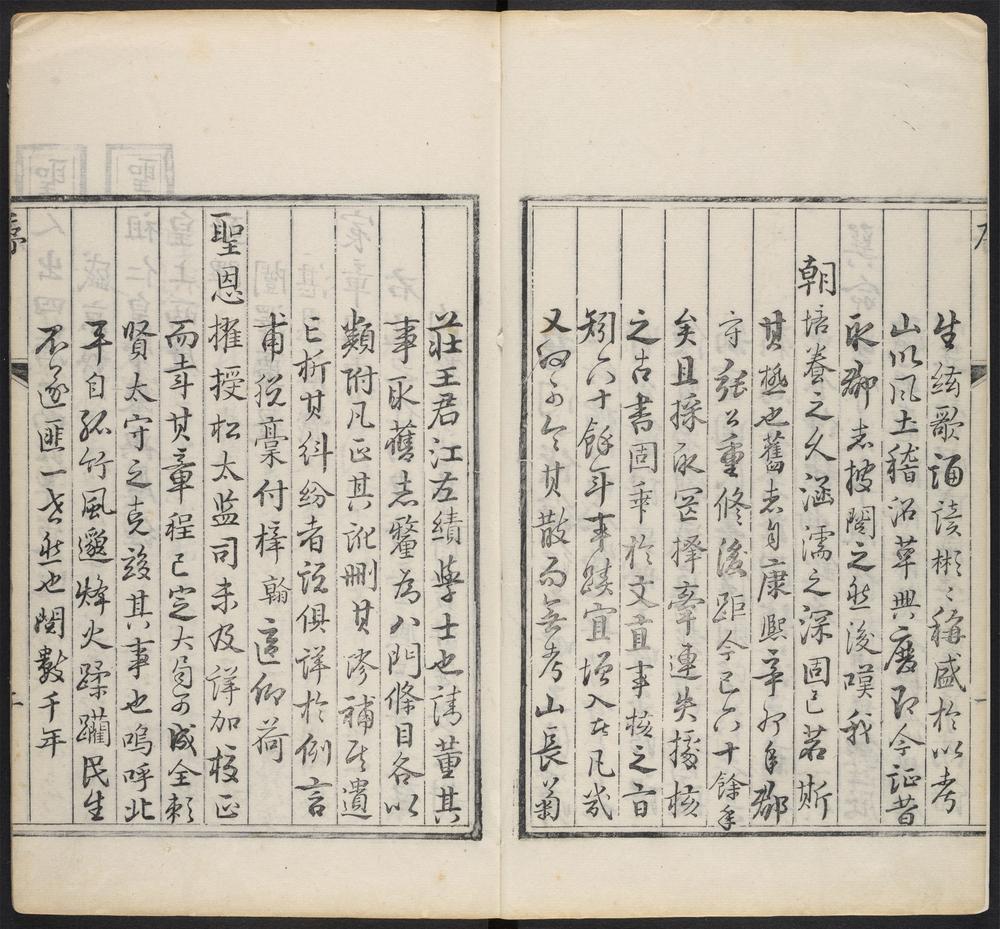 生絃歌誦讀彬彬稱盛於以考
山川風土稽沿革典廢即今証昔
取郡志披閱之然後嘆我
朝培養之久涵濡之深固已若斯
其極也舊志自康熙辛卯年郡
守張公重修後距今已六十餘年
矣且採取罔擇牽連失據核
之古書固乖於文直事核之旨
矧六十餘年事蹟宜增入者凡幾
又烏可令其散而無考山長菊
莊王君江左績學士也請董其
事取舊志釐為八門條目各以
類附凡正其訛刪其謬補其遺
已析其糾紛者說俱詳於例言
甫脫藁付梓翰適仰荷
聖恩擢授松太監司未及詳加校正
而幸其章程已定大局可成全賴
賢太守之克竣其事也嗚呼北
平自孤竹風邈烽火蹂躪民生
不遂匪一世然也閱數千年